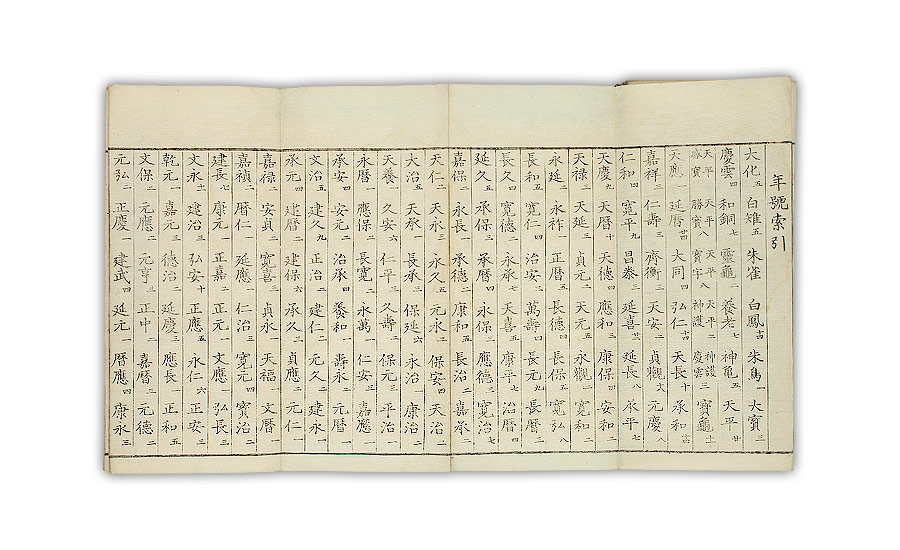 年號索引
大化五 白雉五 朱雀 白鳳十四 朱鳥一 大寶三
慶雲四 和銅七 靈龜二 養老七 神龜五 天平廿
天平感寶 天平勝寶八 天平寶字八 天平神護二 神護慶雲三 寶龜十一
天應一 延暦廿四 大同四 弘仁十四 天長十 承和十四
嘉祥三 仁壽三 齊衡三 天安二 貞觀十八 元慶八
仁和四 寛平九 昌泰三 延喜廿二 延長八 承平七
天慶九 天暦十 天德四 應和三 康保四 安和二
天禄三 天延三 貞元二 天元五 永觀二 寛和二
永延二 永祚一 正暦五 長德四 長保五 寛弘八
長和五 寛仁四 治安三 萬壽四 長元九 長暦三
長久四 寛德二 永承七 天喜五 康平七 治暦四
延久五 承保三 承暦四 永保三 應德三 寛治七
嘉保二 永長一 承德二 康和五 長治二 嘉承二
天仁二 天永三 永久五 元永二 保安四 天治二
大治五 天承一 長承三 保延六 永治一 康治二
天養一 久安六 仁平三 久壽二 保元三 平治一
永暦一 應保二 長寛二 永萬一 仁安三 嘉應二
承安四 安元二 治承四 養和一 壽永二 元暦一
文治五 建久九 正治二 建仁三 元久二 建永一
承元四 建暦二 建保六 承久三 貞應二 元仁一
嘉禄二 安貞二 寛喜三 貞永一 天福一 文暦一
嘉禎三 暦仁一 延應一 仁治三 寛元四 寶治二
建長七 康元一 正嘉二 正元一 文應一 弘長三
文永十一 建治三 弘安十 正應五 永仁六 正安三
乾元一 嘉元三 德治二 延慶三 應長一 正和五
文保二 元應二 元亨三 正中二 嘉暦三 元德二
元弘二 正慶一 建武四 延元一 暦應四 康永三